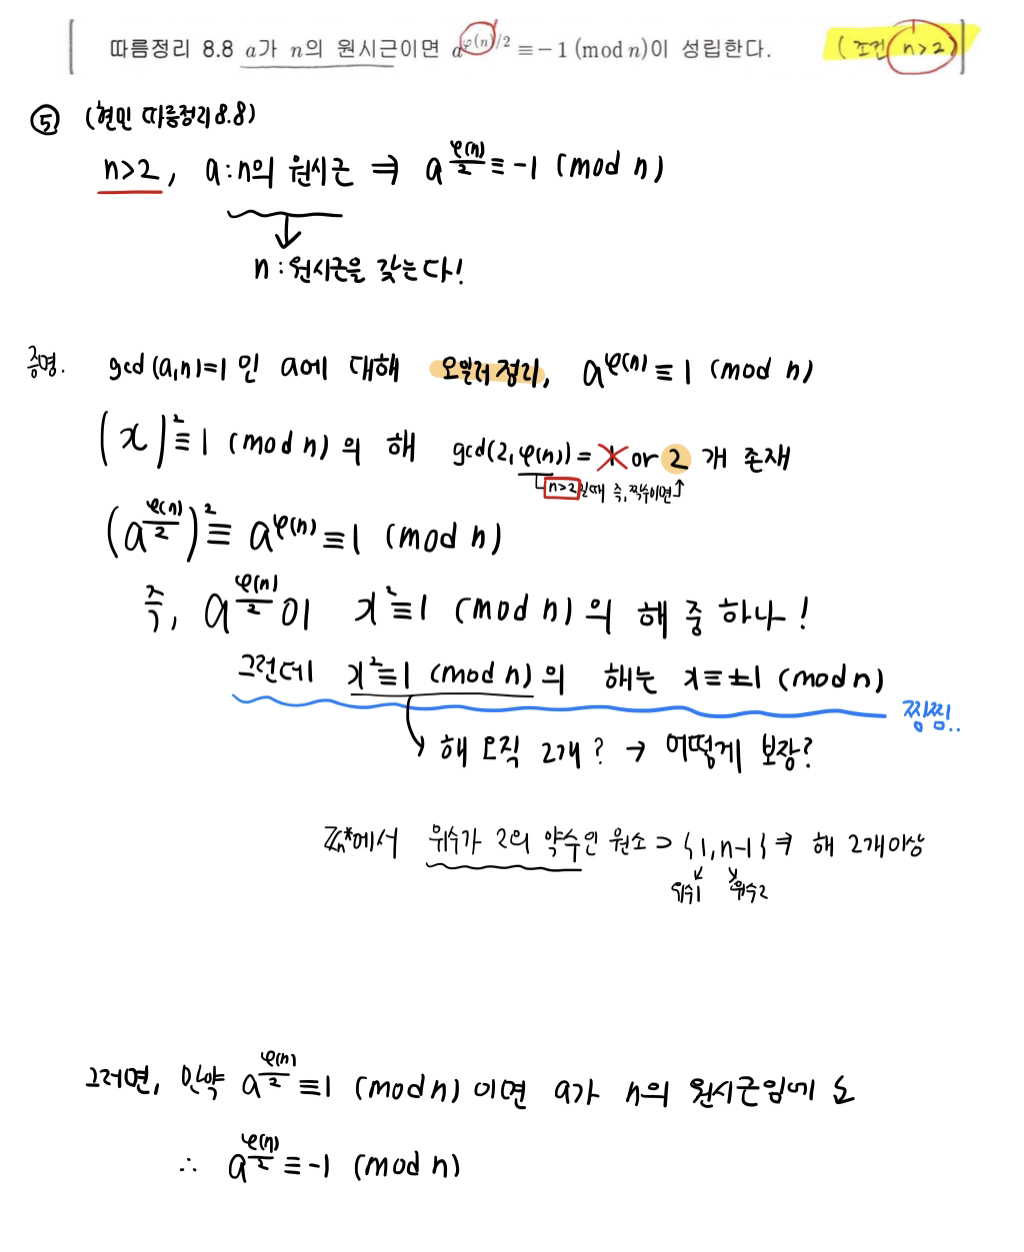 따름정리 8.8 a가 n의 원시근이면 a^{φ(n)/2} ≡ -1 (mod n)이 성립한다. (조건 n>2)
⑤ (현민 따름정리 8.8)
n>2, a:n의 원시근 ⇒ a^{φ(n)/2} ≡ -1 (mod n)
n:원시근을 갖는다!
증명. gcd(a,n)=1 인 a에 대해 오일러 정리, a^{φ(n)} ≡ 1 (mod n)
(x)² ≡ 1 (mod n) 의 해 gcd(2, φ(n)) = 1 or 2 개 존재
n>2일때 즉, 짝수이면↑
(a^{φ(n)/2})² ≡ a^{φ(n)} ≡ 1 (mod n)
즉, a^{φ(n)/2}이 x² ≡ 1 (mod n) 의 해 중 하나!
그런데 x² ≡ 1 (mod n)의 해는 x ≡ ±1 (mod n)
찜찜!..
해 오직 2개? → 어떻게 보장?
ℤn*에서 위수가 2의 약수인 원소 ⊃ {1, n-1} ⇒ 해 2개이상
위수1 위수2
그러면, 만약 a^{φ(n)/2} ≡ 1 (mod n) 이면 a가 n의 원시근임에 모
∴ a^{φ(n)/2} ≡ -1 (mod n)